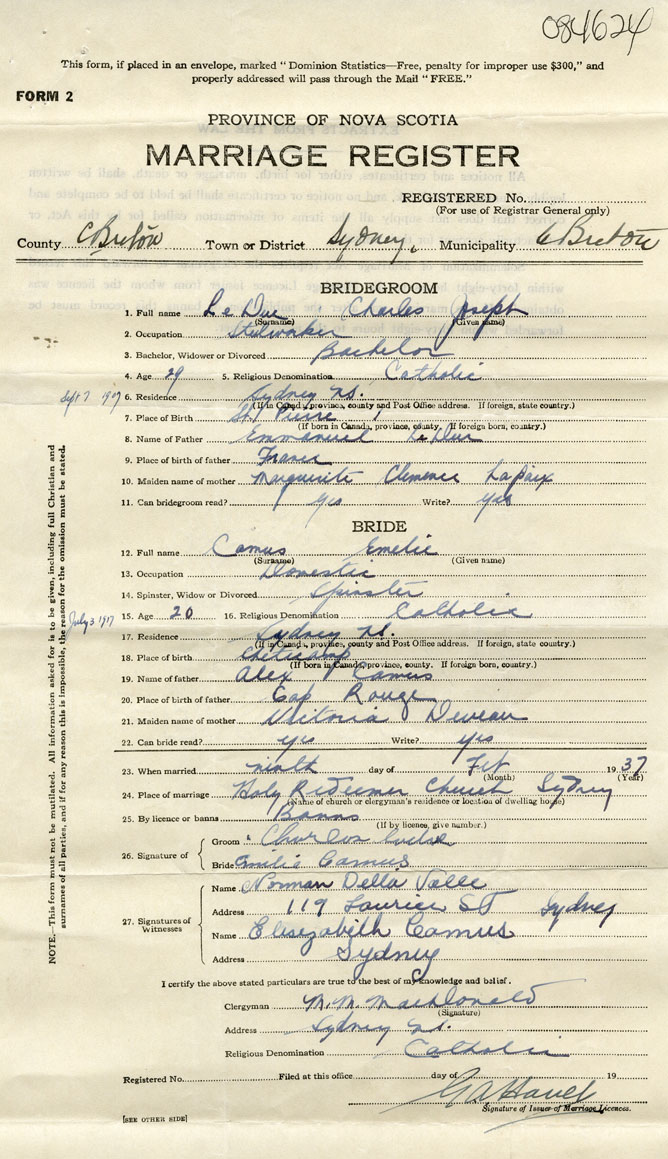 084624
This form, if placed in an envelope, marked "Dominion Statistics—Free, penalty for improper use $300," and
properly addressed will pass through the Mail "FREE."
FORM 2
PROVINCE OF NOVA SCOTIA
MARRIAGE REGISTER
REGISTERED No.
(For use of Registrar General only)
County C Breton Town or District Sydney, Municipality C Breton
BRIDEGROOM
1. Full name Le Due Charles Joseph
(Surname) (Given name)
2. Occupation Steelworker
3. Bachelor, Widower or Divorced Bachelor
4. Age 29 5. Religious Denomination Catholic
Sept 7 1907
6. Residence Sydney N.S.
(If in Canada, province, county and Post Office address. If foreign, state country.)
7. Place of Birth St. Pierre
(If born in Canada, province, county. If foreign born, country.)
8. Name of Father Emmanuel Le Due
9. Place of birth of father France
10. Maiden name of mother Marguerite Clemence LaPaix
11. Can bridegroom read? yes Write? yes
BRIDE
12. Full name Camus Emelie
(Surname) (Given name)
13. Occupation Domestic
14. Spinster, Widow or Divorced Spinster
15. Age 20 16. Religious Denomination Catholic
July 3 1917
17. Residence Sydney N.S.
(If in Canada, province, county and Post Office address. If foreign, state country.)
18. Place of birth Cheticamp
(If born in Canada, province, county. If foreign born, country.)
19. Name of father Alex Camus
20. Place of birth of father Cap Rouge
21. Maiden name of mother Deveau
22. Can bride read? yes Write? yes
23. When married ninth day of Feb 1937
(Month) (Year)
24. Place of marriage Holy Redeemer Church Sydney
(Name of church or clergyman's residence or location of dwelling house)
25. By licence or banns Banns
(If by licence, give number.)
26. Signature of
Groom Charles
Bride Emilie Camus
27. Signatures of Witnesses
Name Norman Della Valle
Address 119 Laurier St Sydney
Name Elisezabilth Camus
Address Sydney
I certify the above stated particulars are true to the best of my knowledge and belief.
Clergyman M. M. MacDonald
(Signature)
Address Sydney N.S.
Religious Denomination Catholic
Registered No. Filed at this office day of 19
Signature of Issuer of Marriage Licences.
[SEE OTHER SIDE]
NOTE.—This form must not be mutilated. All information asked for is to be given, including full Christian and
surnames of all parties, and if for any reason this is impossible, the reason for the omission must be stated.